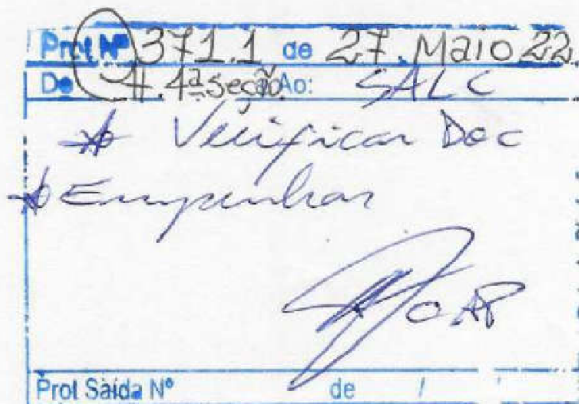 Prot Nº 371.1 de 27. Maio 22
De 4.4ª Seção Ao: SALC
* Verificar Doc
* Empenhar
OAP
Prot Saída Nº de / /